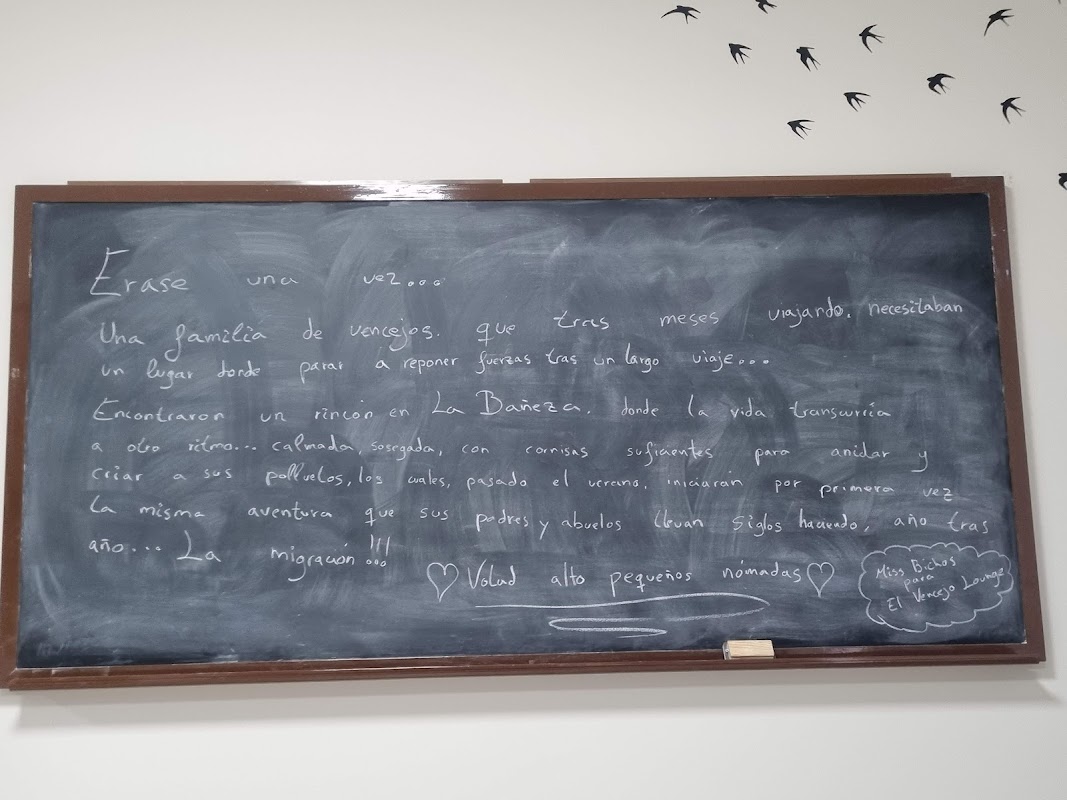 Erase una vez...
Una familia de vencejos. que tras meses viajando. necesitaban
un lugar donde parar a reponer fuerzas tras un largo viaje...
Encontraron un rincón en La Bañeza. donde la vida transcurría
a otro ritmo... calmada, sosegada, con cornisas suficientes para anidar y
criar a sus polluelos, los cuales, pasado el verano, iniciarán por primera vez
la misma aventura que sus padres y abuelos llevan siglos haciendo, año tras
año... La migración!!!
♡ Volad alto pequeños nómadas ♡
Miss Bichos
para
El Vencejo Lounge